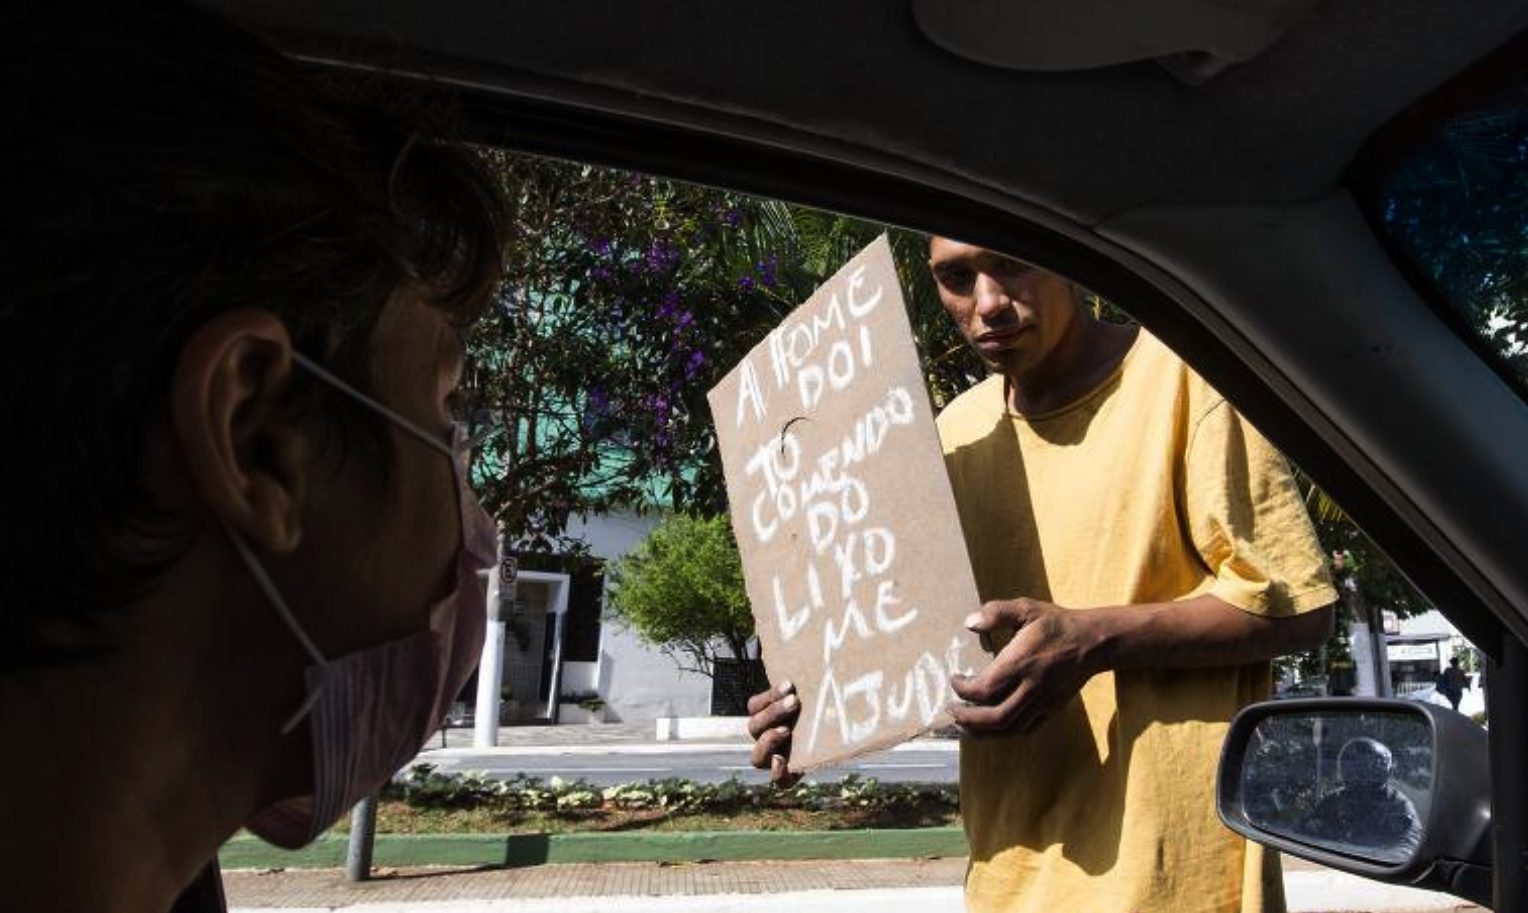 A FOME
DOI
TO
COMENDO
DO
LIXO
ME
AJUDE